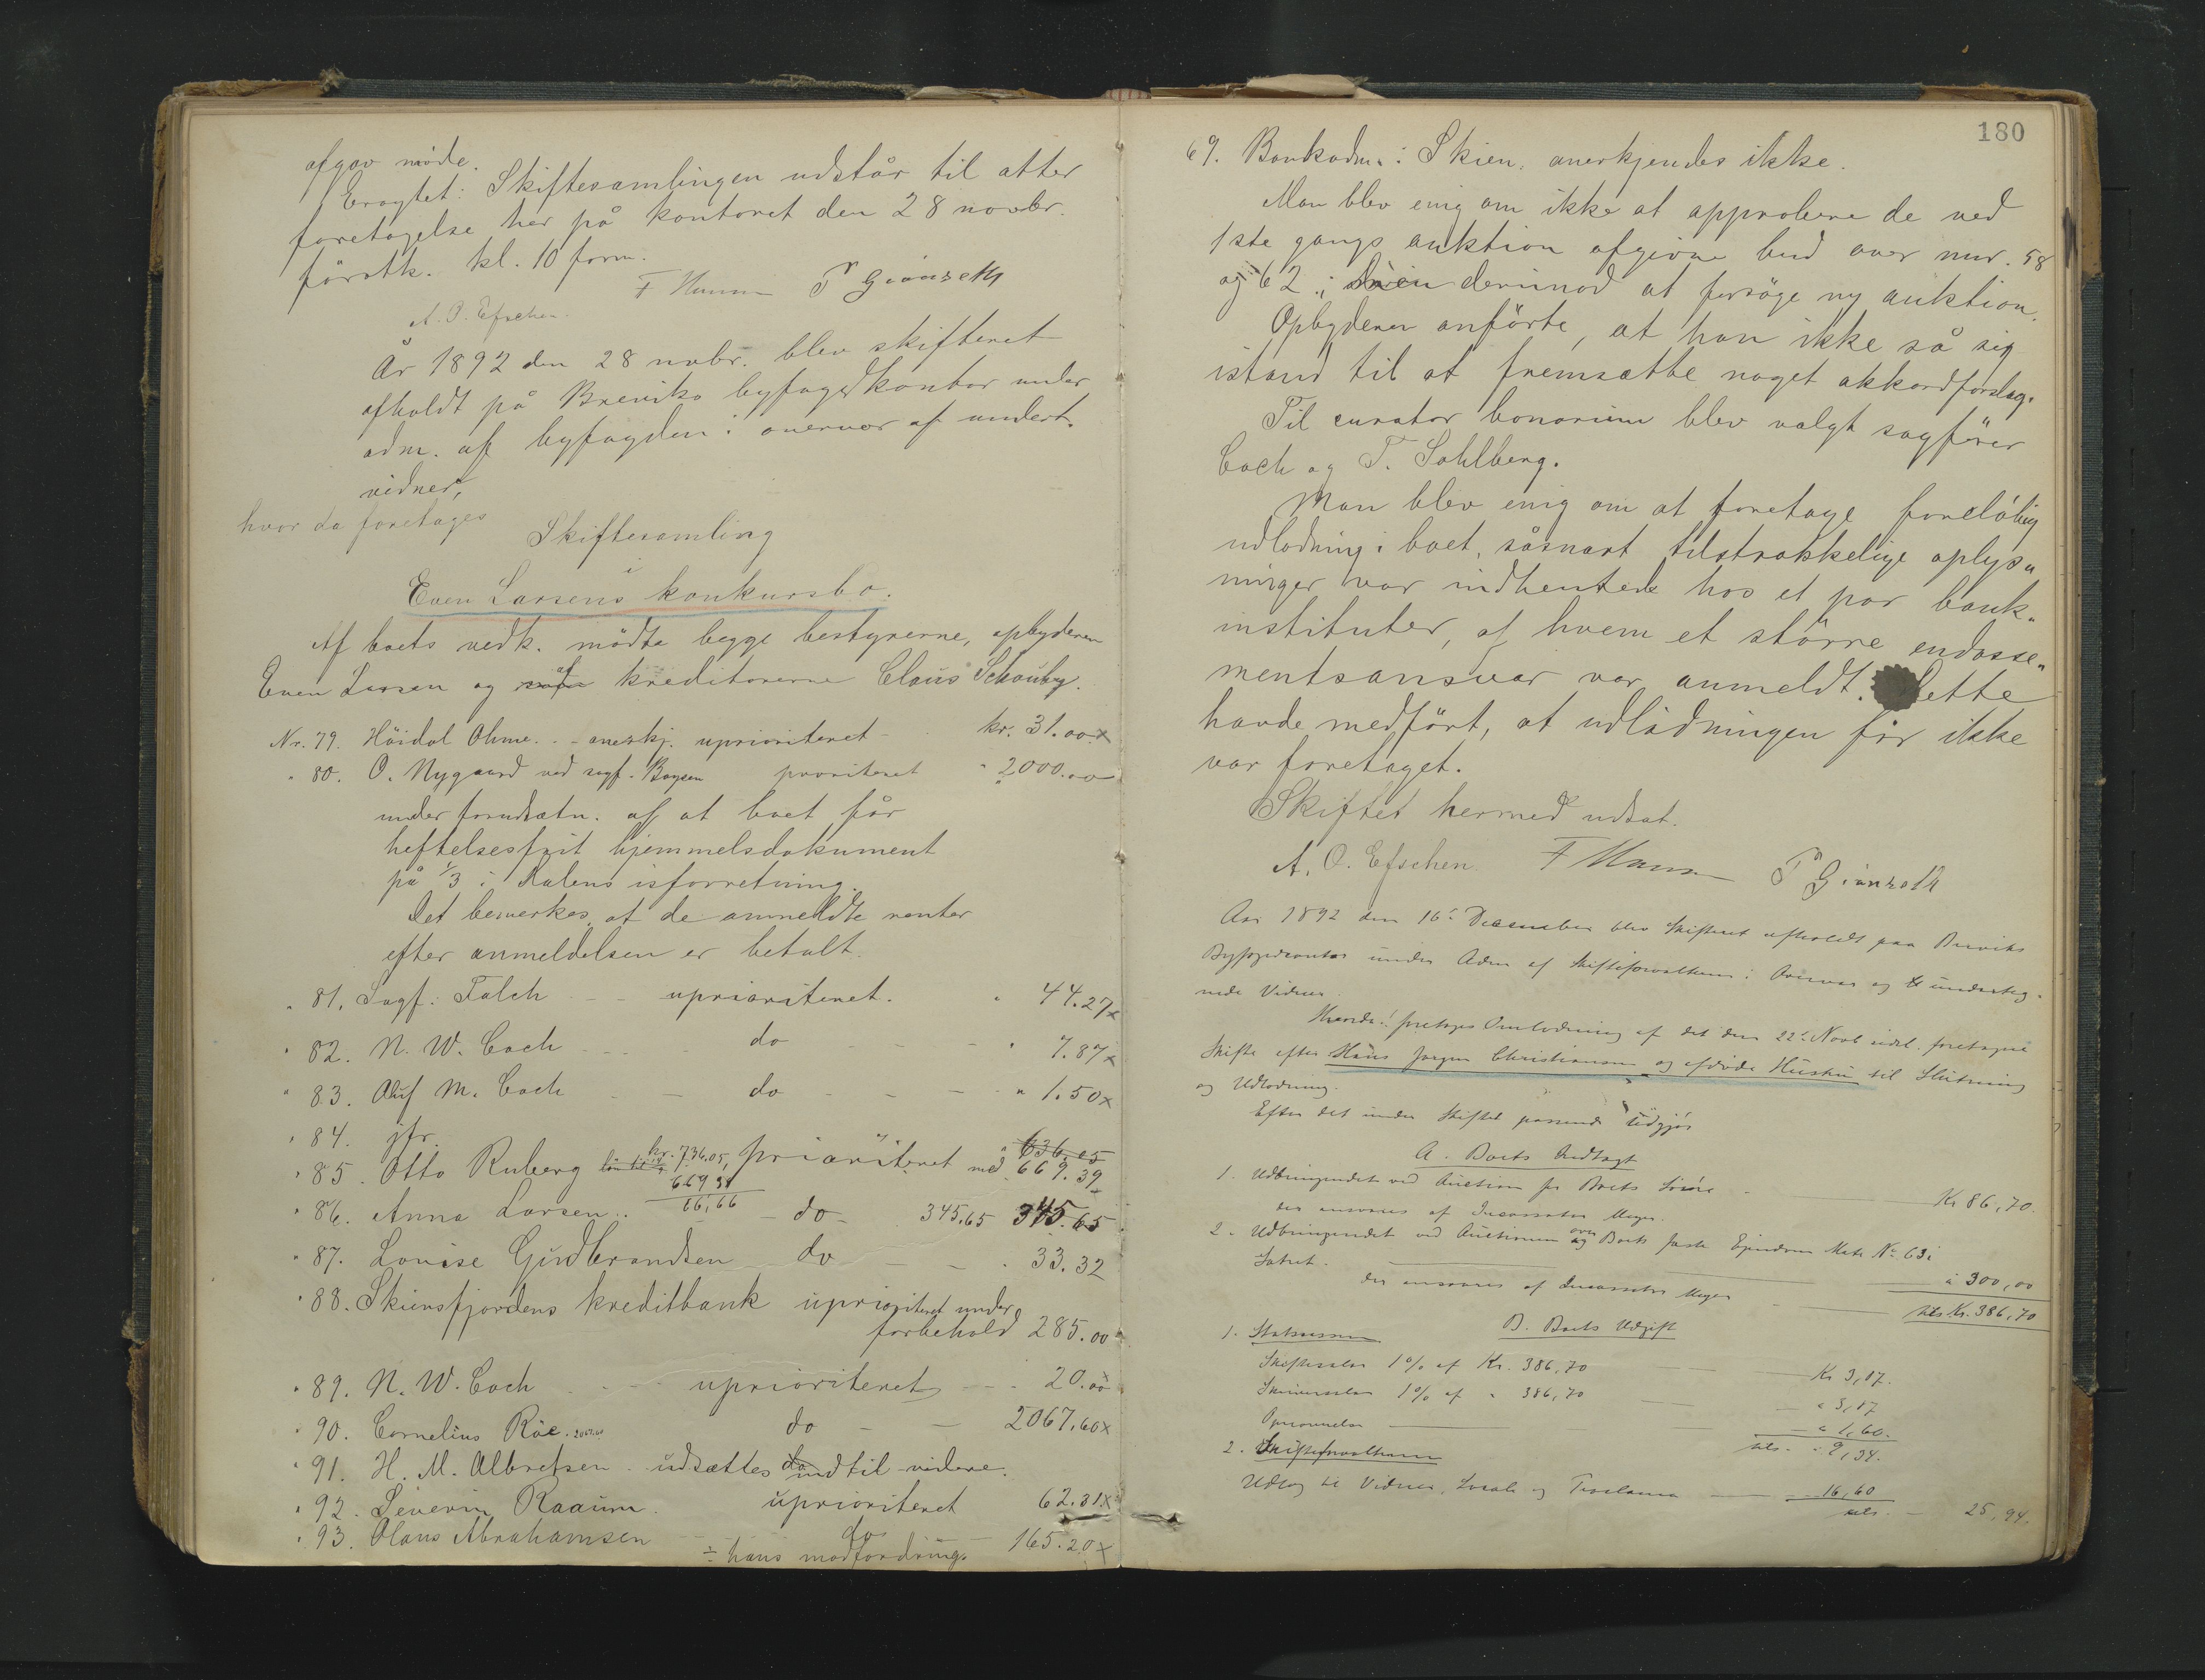 afgav møde.
Eragtet: Skiftesamlingen udstår til atter
foretagelse her på kontoret den 28 novbr.
förstk. kl. 10 form.
A. O. Efschen.
År 1892 den 28 novbr. blev skifteret
afholdt på Breviks byfogedkontor under
adm. af byfogden i overvær af undert.
vidner,
hvor da foretages
Skiftesamling
i
Even Larsens konkursbo.
Af boets vedk. mødte begge bestyrerne, opbyderen
Even Larsen og af kreditorerne Claus Schouby.
Nr. 79. Höidal Ohme. - anerkj. uprioriteret - kr. 31.00 x
" 80. O. Nygaard ved sagf. Boysen prioriteret " 2000.00
under forudsætn. af at boet får
heftelsesfrit hjemmelsdokument
på 1/3 i Kalens isforretning.
Det bemerkes, at de anmeldte renter
efter anmeldelsen er betalt.
" 81. Sagf: Falch - - uprioriteret. " 44.27 x
" 82. N. W. Coch - - do - - " 7.87 x
" 83. Oluf M. Coch - - do - - " 1.50 x
" 84. jfr. 636.05
" 85. Otto Ruberg kr. 736.05, prioriteret med 669.39
669 39
66,66
" 86. Anna Larsen.. - do - 345.65 345.65
" 87. Lovise Gudbrandsen do - - 33.32
" 88. Skiensfjordens kreditbank uprioriteret under
forbehold 285.00
" 89. N. W. Coch - - uprioriteret - - 20.00
" 90. Cornelius Röe. do - - 2067.60 x
" 91. H. M. Albretsen - udsættes indtil videre.
" 92. Severin Raaum. uprioriteret 62.31 x
" 93. Olaus Abrahamsen - do 165.20 x
÷ hans modfordring.
180
69. Bankadm. i Skien, anerkjendes ikke.
Man blev enig om ikke at approbere de ved
1ste gangs auktion afgivne bud over nr. 58
og 62, men derimod at forsöge ny auktion.
Opbyderen anförte, at han ikke så sig
istand til at fremsætte noget akkordforslag.
Til curator bonorum blev valgt sagförer
Coch og T. Sahlberg.
Man blev enig om at foretage foreløbig
udlodning i boet, såsnart tilstrækkelige oplys„
ninger var indhentede hos et par bank„
instituter, af hvem et större endosse„
mentsansvar var anmeldt. Dette
havde medfört, at udlodningen för ikke
var foretaget.
Skiftet hermed udsat.
A. O. Efschen
Aar 1892 den 16de December blev Skifteret afholdt paa Breviks
Byfogedcontor under Adm af Skifteforvalteren i Overvær af underteg-
nede Vidner.
foretages Omlodning af det den 22de Novb sidst. foretagne
Skifte efter Hans Jørgen Christiansen og afdøde Hustru til Slutning
og Udlodning.
Efter det under Skiftet passerede udgjør
A. Boets Indtægt
1. Udbringendet ved Auction for Boets Løsøre Kr 86,70.
der ansvares af Incassator Meyer.
2. Udbringendet ved Auctionen over Boets faste Eiendom Matr No 63 i
der ansvares af Incassator Meyer - " 300,00
tils Kr. 386,70
B. Boets Udgift
1. Statskassen
Skiftesalær 1% af Kr. 386,70 Kr 3,87.
Skriversalær 1% af " 386,70 - " 3,87
" 1,60.
tils. - " 9,34.
2. Skifteforvalteren
Udlæg til Vidner, Locale og 16,60
tils. - 25,94.